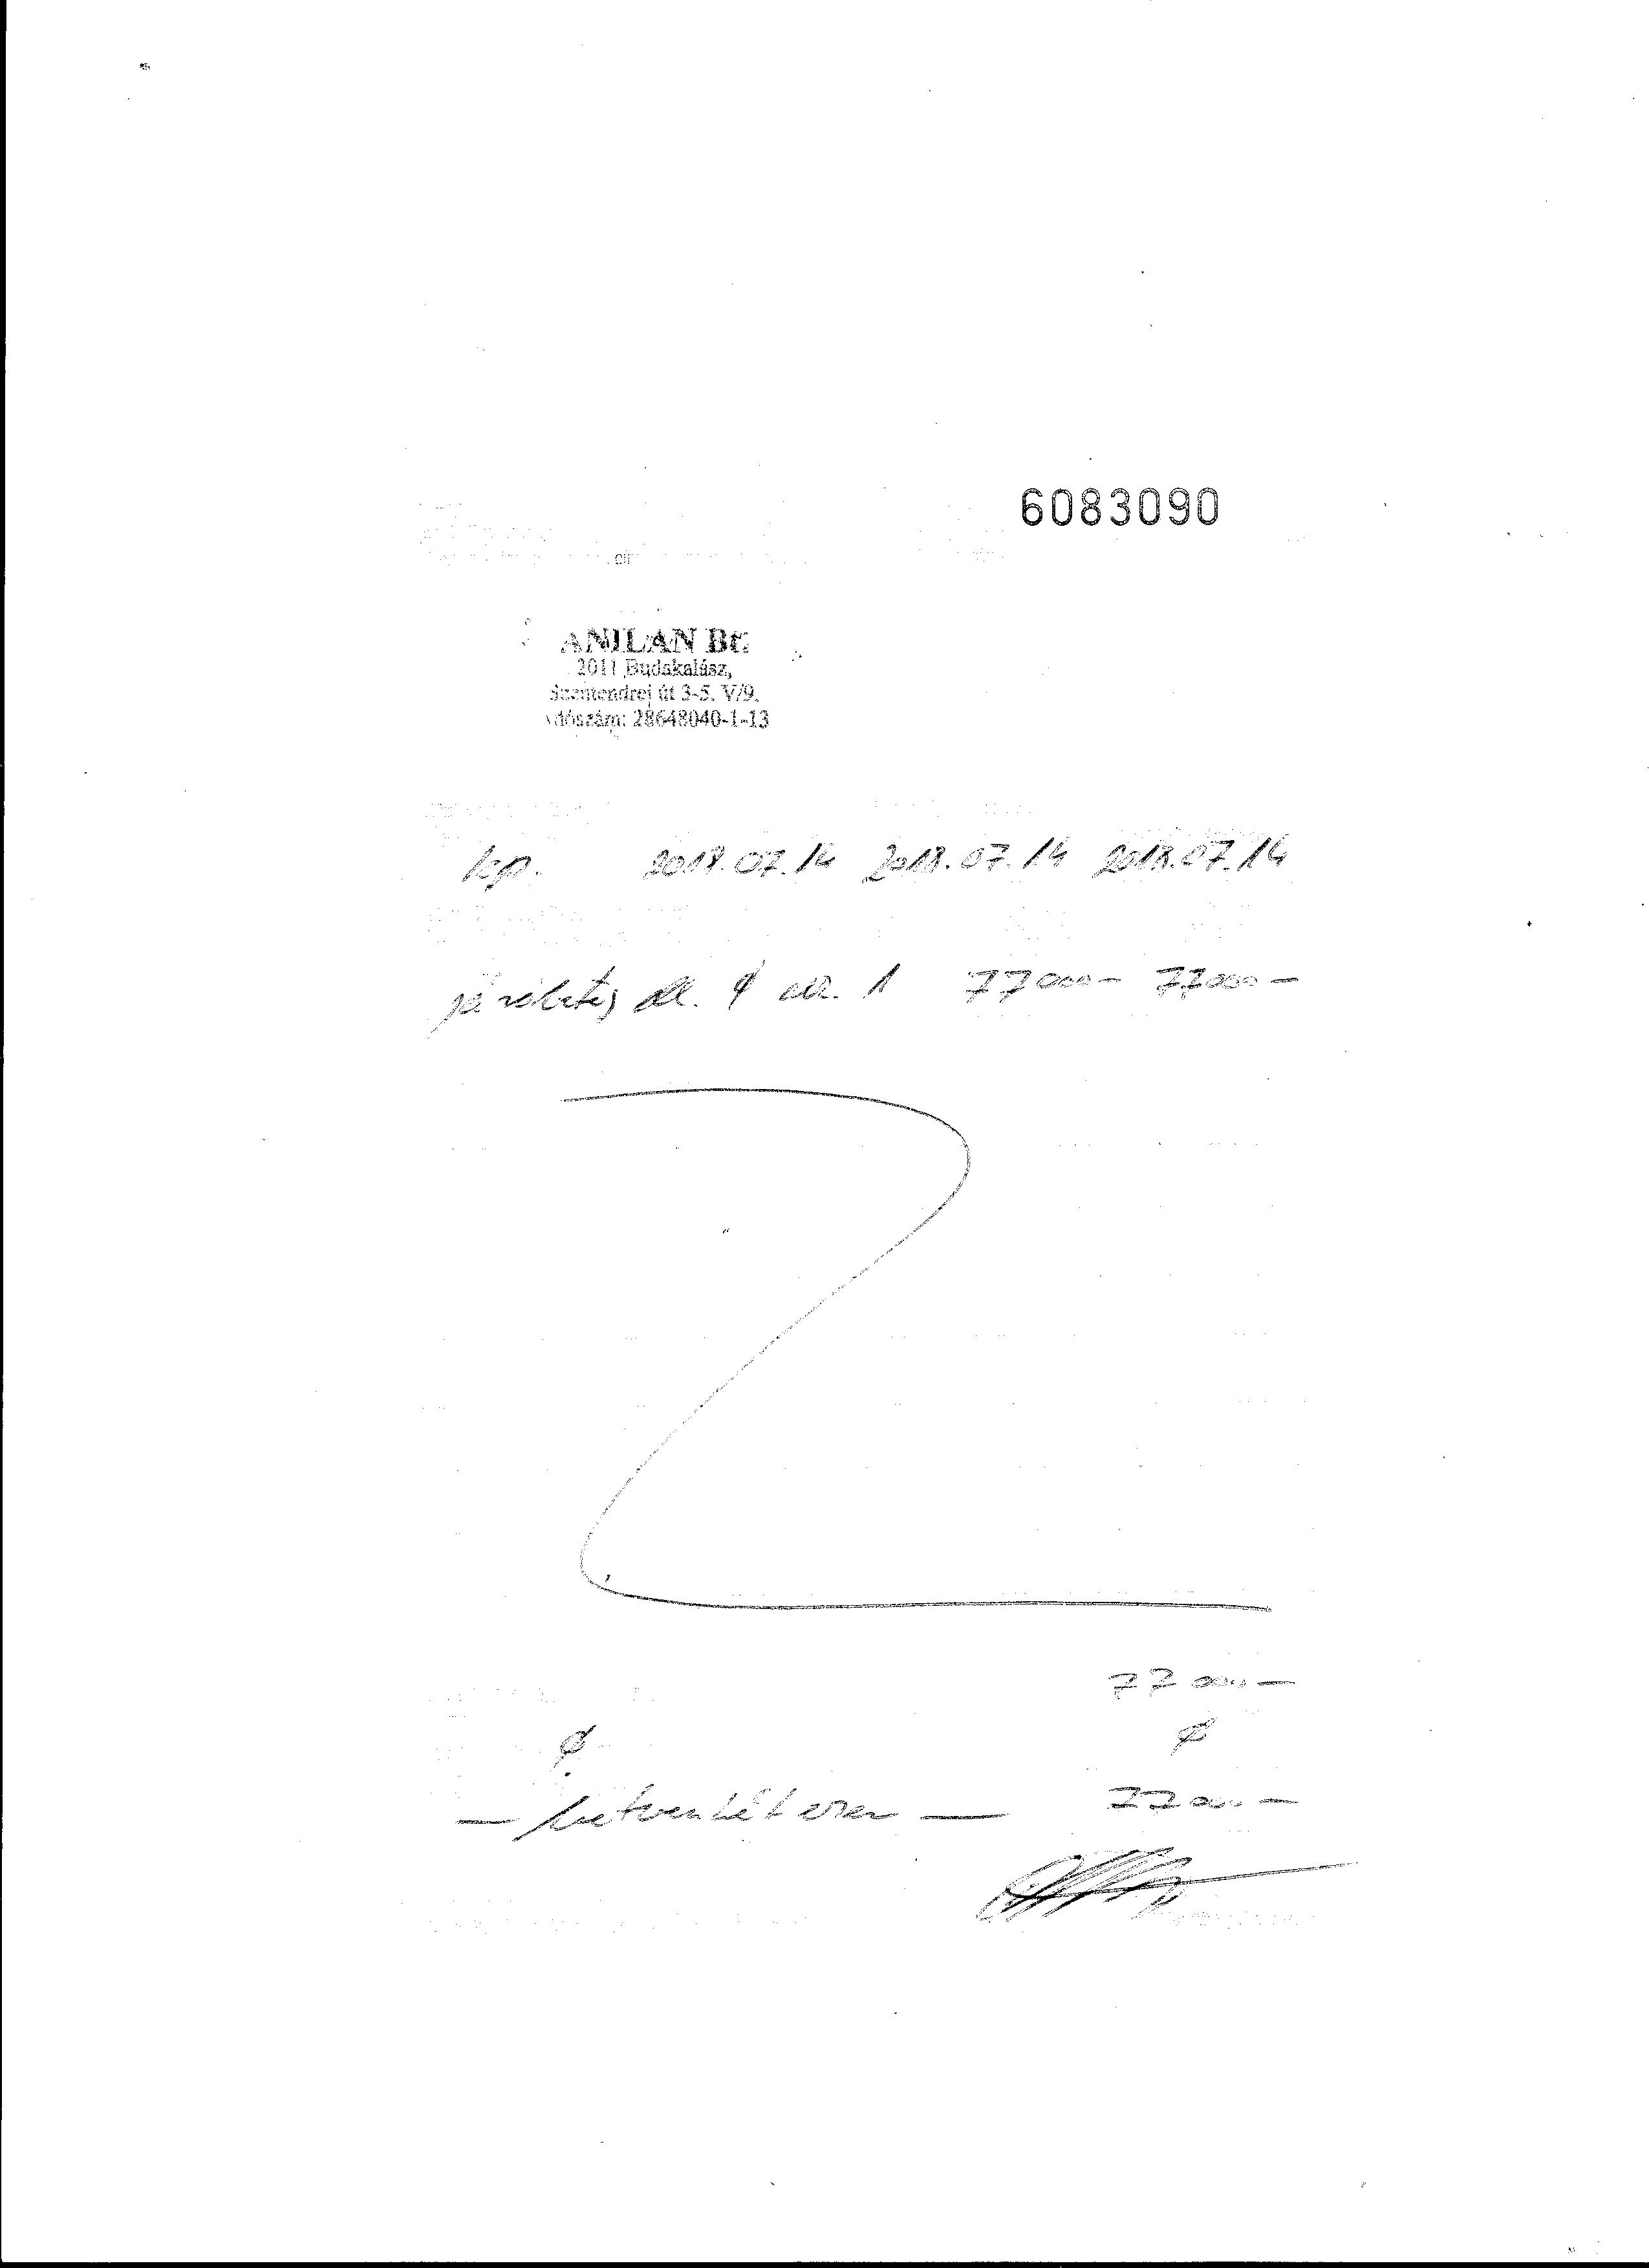 6083090
ANILAN Bt.
2011 Budakalász,
Szentendrei út 3-5. V/9.
Adószám: 28648040-1-13
kp. 2018.07.14 2018.07.14 2018.07.14
járólap 1 77000- 77000-
77000-
Ø Ø
— hetvenhét ezer — 77000-